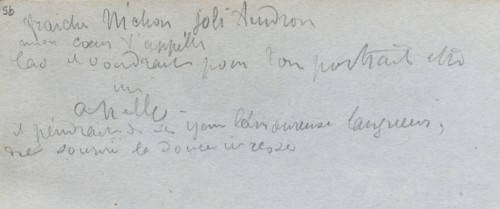 5b
fraiche Nichon Joli Tendron
mon cœur t'appelle
Car il voudrait pour ton portrait être
un
apelle -
il peindrait de ses yeux l'amoureuse langueur,
de souvir la douce ivresse